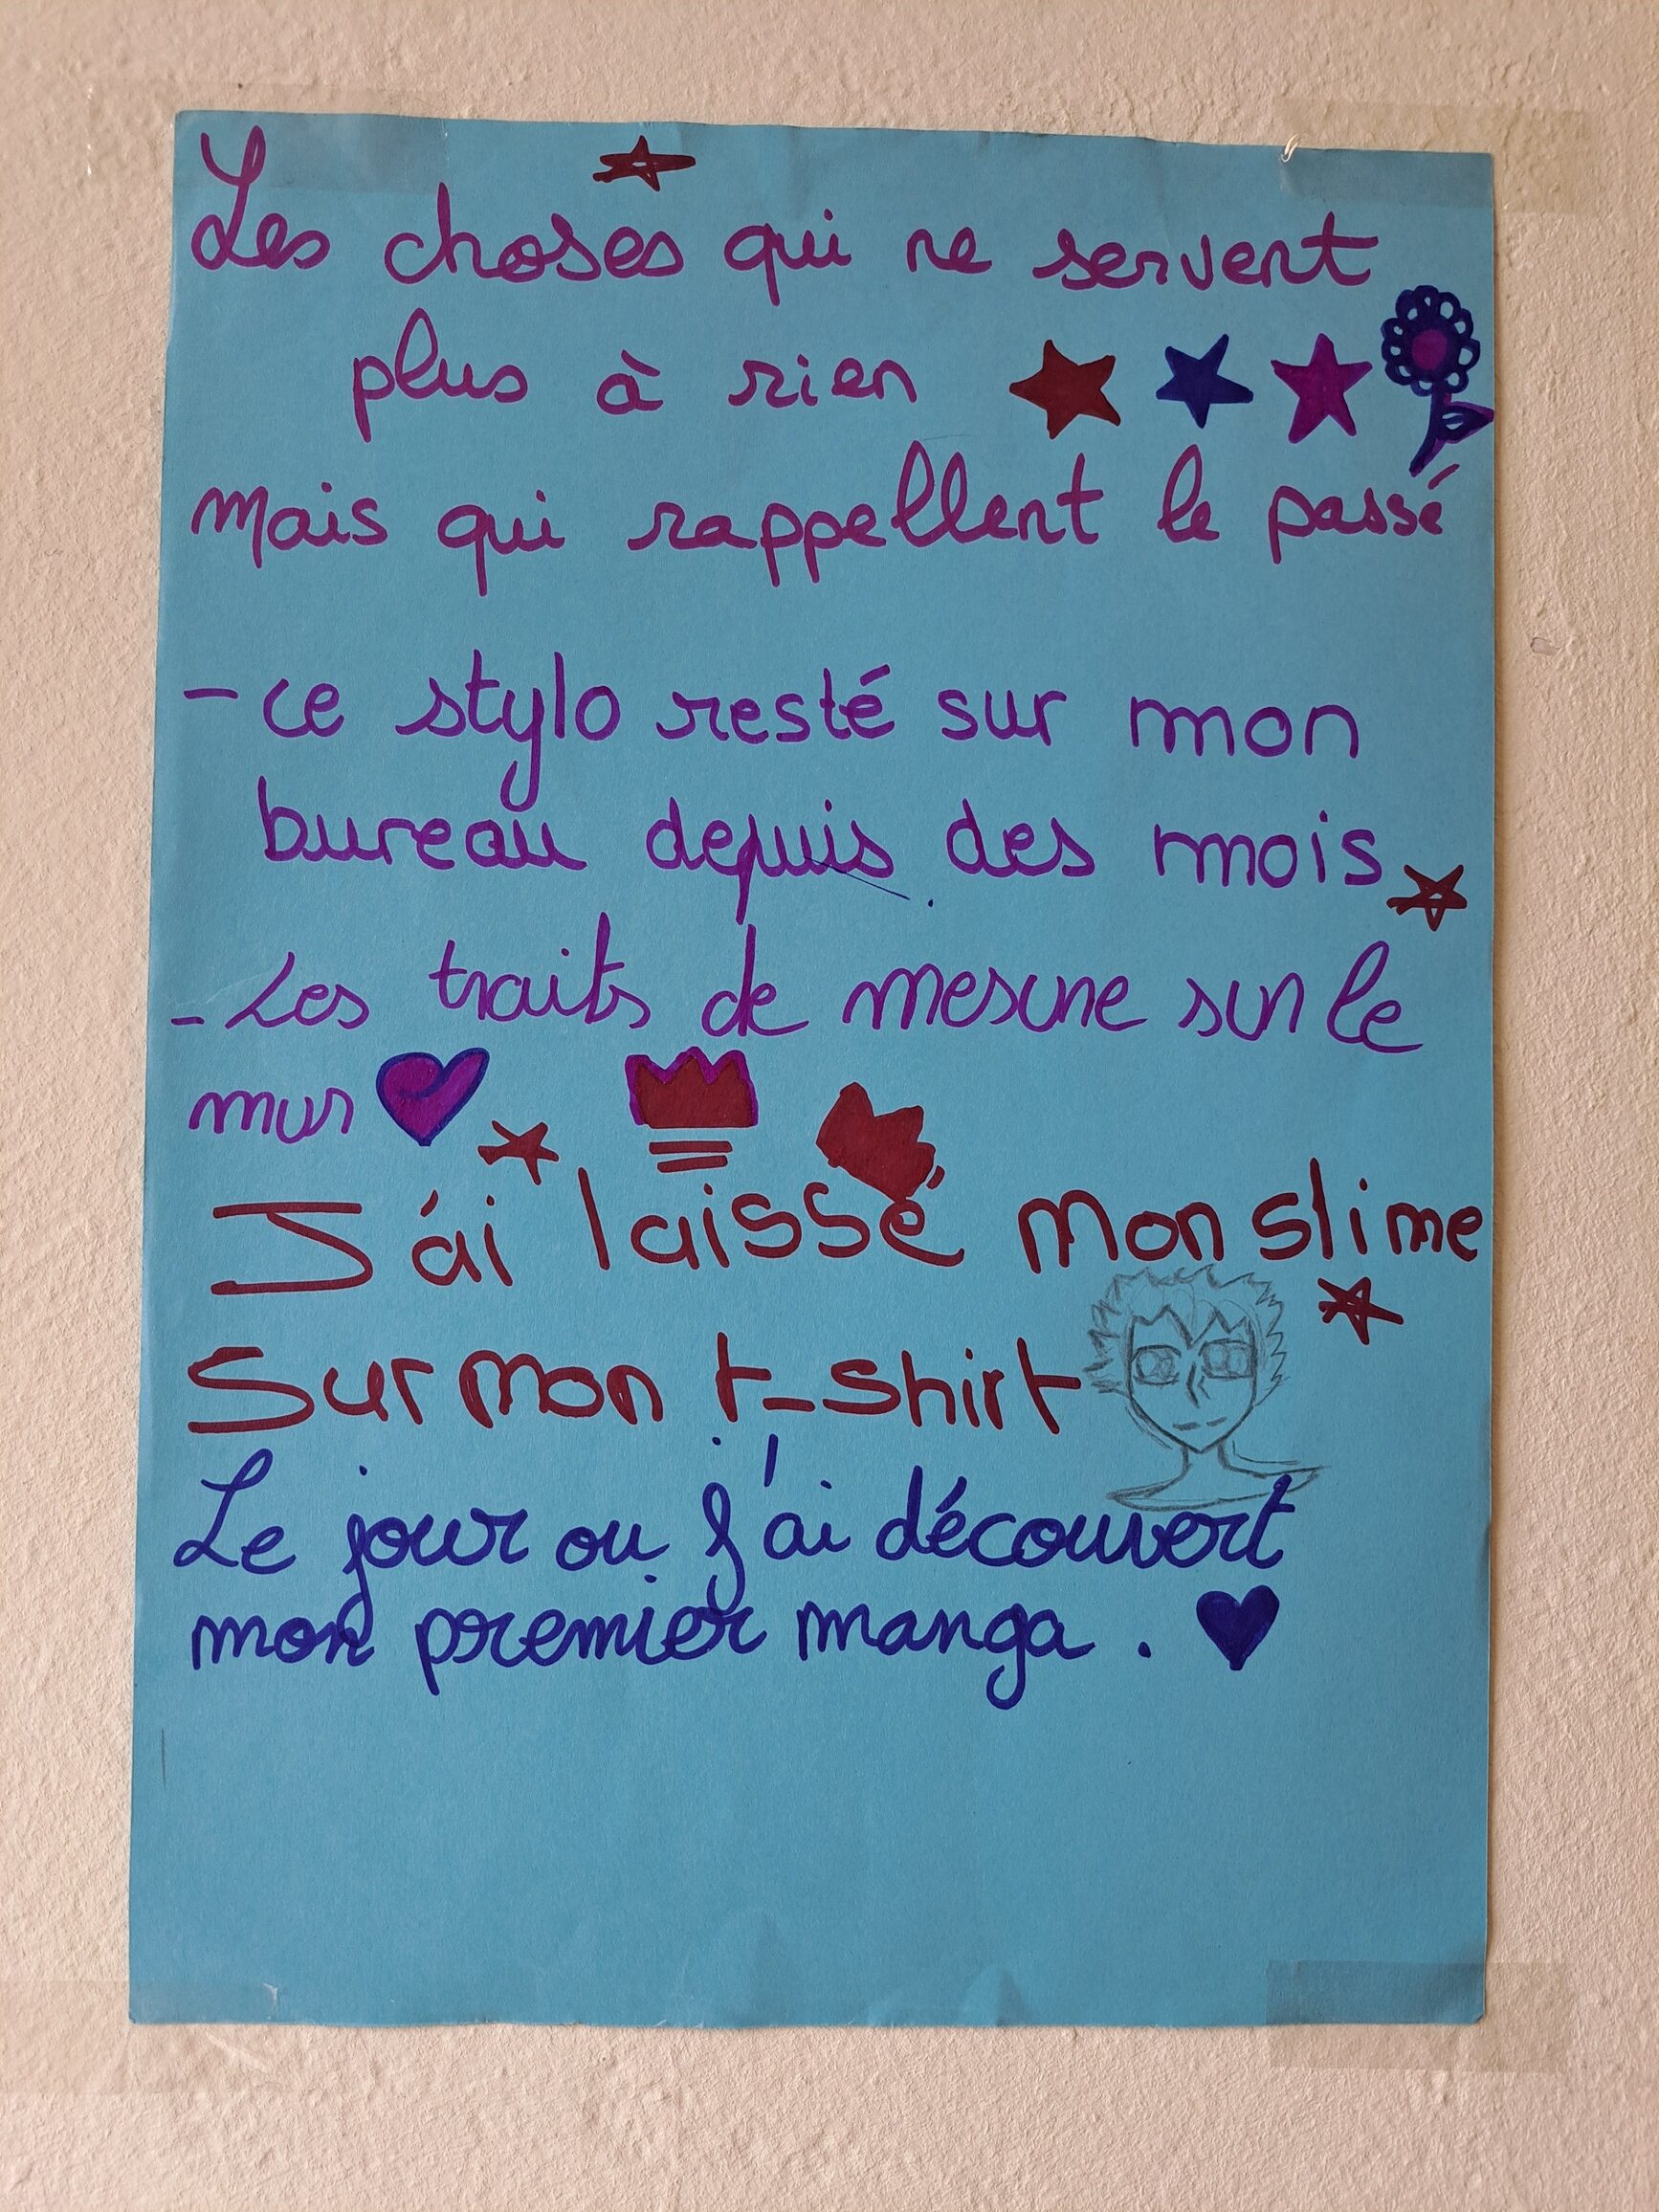 Les choses qui ne servent
plus à rien
mais qui rappellent le passé
- ce stylo resté sur mon
bureau depuis des mois
- Les traits de mesure sur le
mur
J'ai laissé mon slime
Sur mon t-shirt
Le jour ou j'ai découvert
mon premier manga.